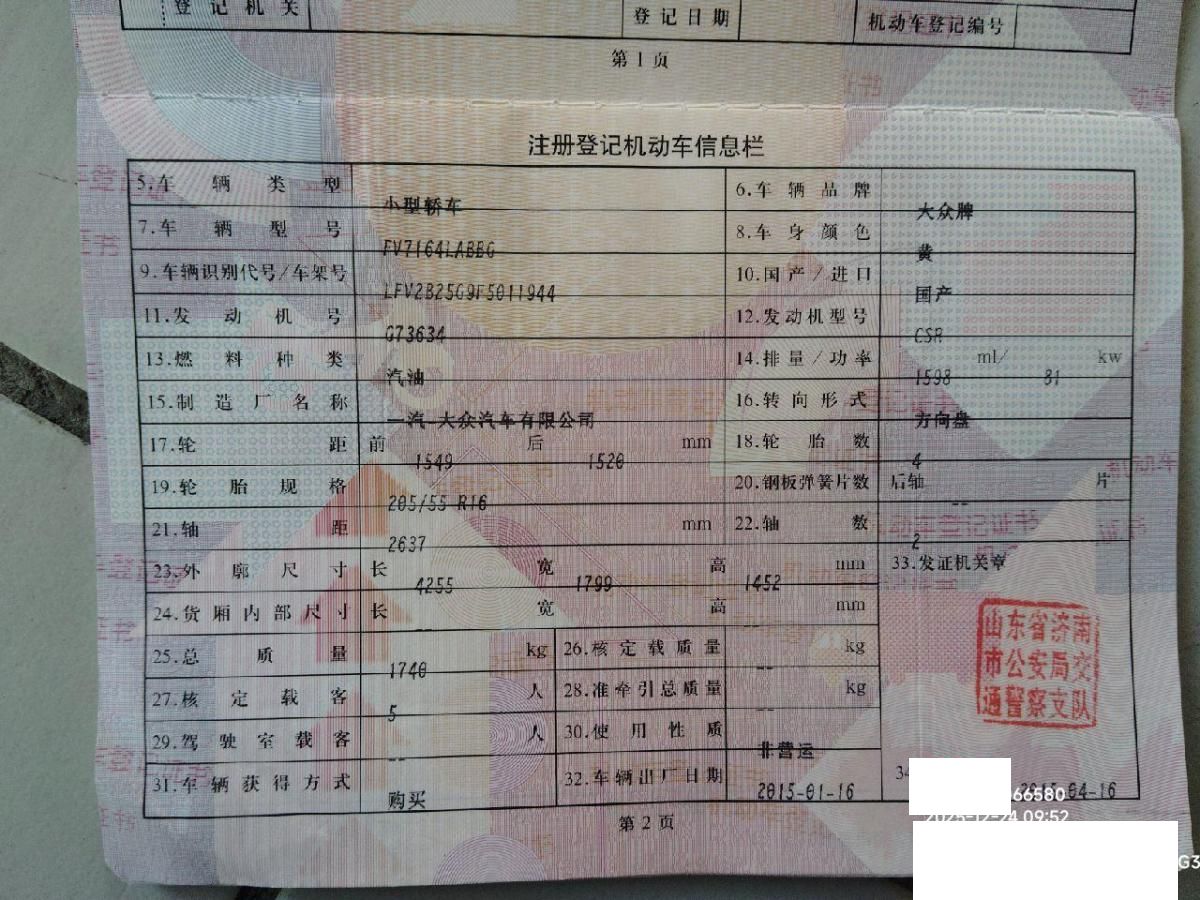 登记机关 登记日期 机动车登记编号
第1页
注册登记机动车信息栏
5.车辆类型 小型轿车 6.车辆品牌 大众牌
7.车辆型号 FV7164LABBG 8.车身颜色 黄
9.车辆识别代号/车架号 LFV2B25G9F5011944 10.国产/进口 国产
11.发动机号 G73634 12.发动机型号 CSR
13.燃料种类 汽油 14.排量/功率 1598 ml/ 81 kw
15.制造厂名称 一汽-大众汽车有限公司 16.转向形式 方向盘
17.轮距 前 1549 后 1520 mm 18.轮胎数 4
19.轮胎规格 205/55 R16 20.钢板弹簧片数 后轴 -- 片
21.轴距 2637 mm 22.轴数 2
23.外廓尺寸 长 4255 宽 1799 高 1452 mm 33.发证机关章
24.货厢内部尺寸 长 -- 宽 高 mm
山东省济南
市公安局交
通警察支队
25.总质量 1740 kg 26.核定载质量 -- kg
27.核定载客 5 人 28.准牵引总质量 -- kg
29.驾驶室载客 -- 人 30.使用性质 非营运
31.车辆获得方式 购买 32.车辆出厂日期 2015-01-16 34 2015-04-16
66580
2025-12-24 09:52
G3
第2页